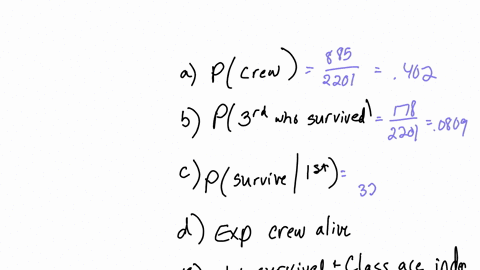 a) P(crew) = 885/2201 = .402
b) P(3rd who survived) = 178/2201 = .0809
c) P(survive | 1st) =
32
d) Exp crew alive
survived + Class are indep